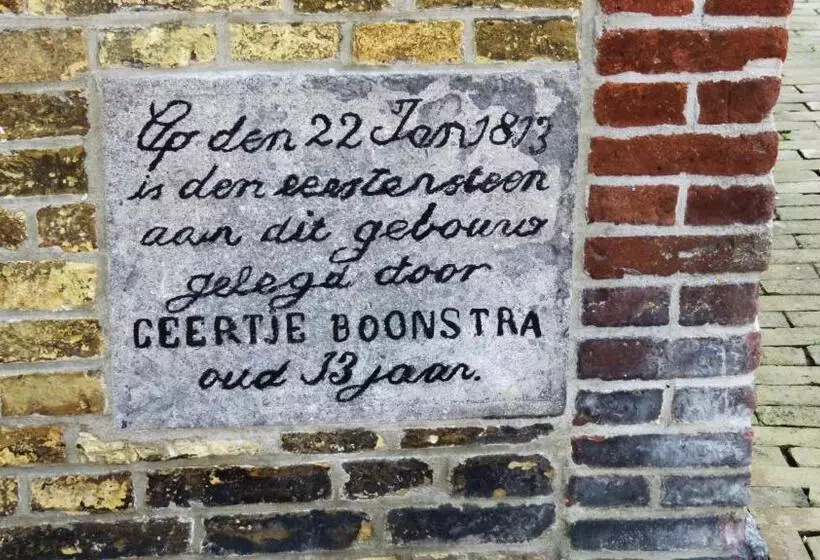 Op den 22 Jan 1813
is den eerstensteen
aan dit gebouw
gelegd door
GEERTJE BOONSTRA
oud 13 jaar.